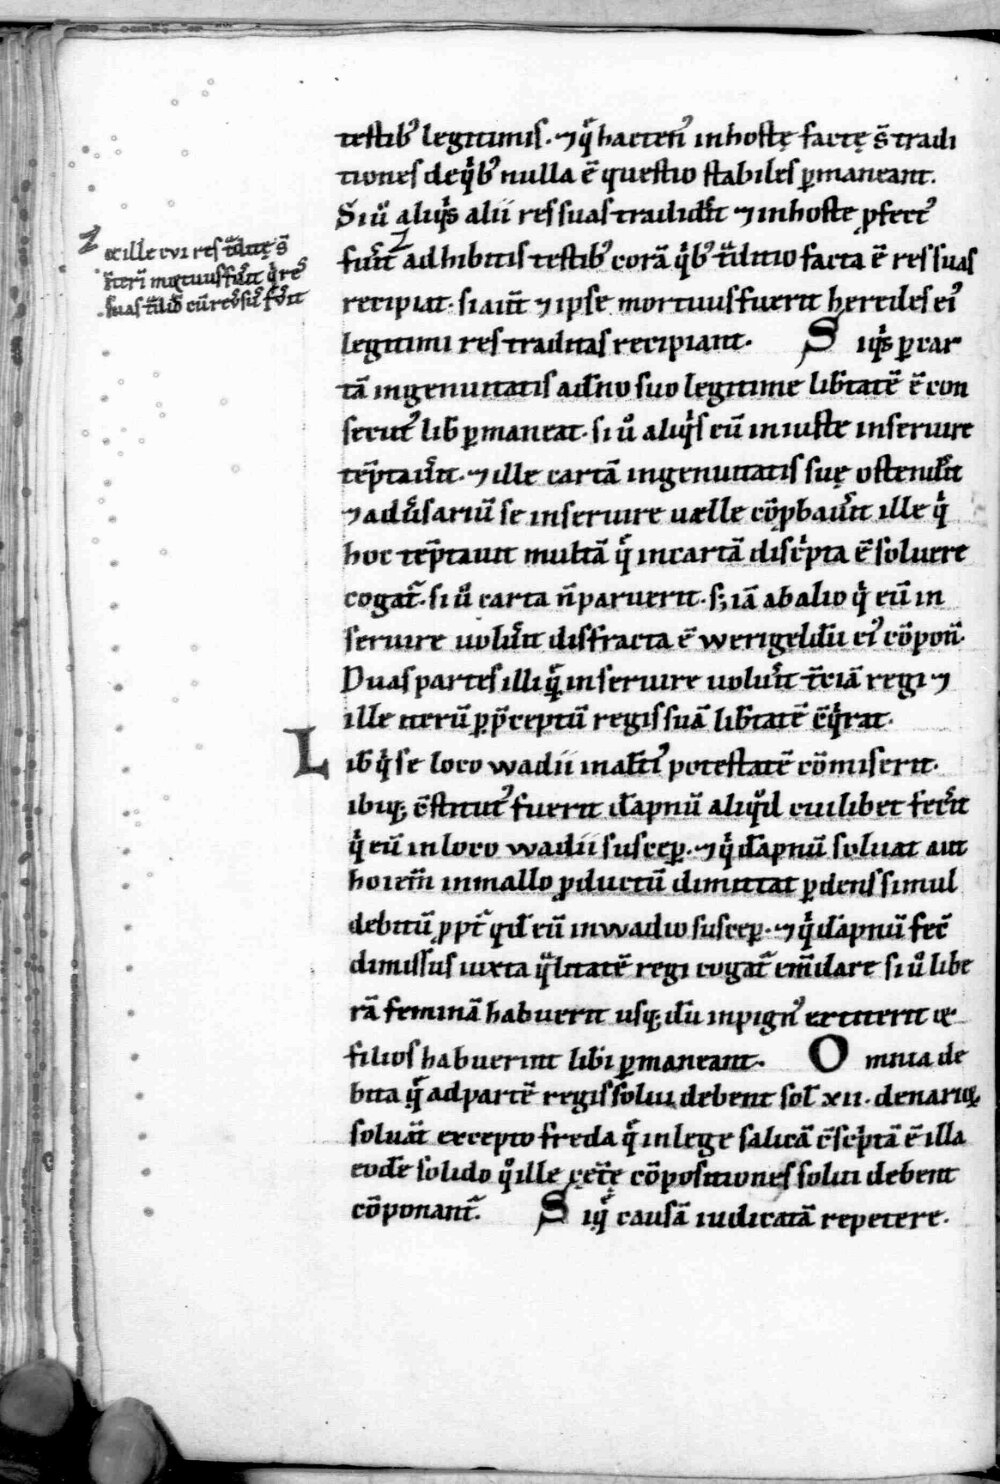 testib᷒ legitimis. ⁊ q̄ hacten᷒ in hostę factę s̄ tradi
tiones de qͥb᷒ nulla ē questio stabiles ꝑmaneant.
Si ů aliqͥs alii res suas tradid̄it ⁊ in hoste ꝓfect᷒
fuͥt adhibitis testib᷒ corā qͥb᷒ t̄ditio facta ē res suas
recipiat. si aūt ⁊ ipse mortuus fuerit heredes ei᷒
legitimi res traditas recipiant. Siqͥs ꝑ car
tā ingenuitatis a dn̄o suo legitime lib̄tatē ē con
secut᷒ lib̄ ꝑmaneat. si ů aliqͥs eū iniuste inseruire
tēptaūit. ⁊ ille cartā ingenuitatis suę ostend̄it
⁊ adůsariū se inseruire uælle cōpbaūit ille qͥ
hoc tēptauit multā q̄ in cartā discͥpta ē soluere
cogat᷒. si ů carta n̄ paruerit. s; iā ab alio qͥ eū in
seruire uoluͥt disfracta ē werigeldū ei᷒ cōpon̄.
Duas partes illi q̄ inseruire uoluͥt t̄ciā regi ⁊
ille iterū ꝑ p̄ceptū regis suā lib̄tatē cͦqͥrat.
Lib̄ qͥ se loco wadii in alt̄i᷒ potestatē cōmiserit.
ibiq; cͦstitut᷒ fuerit dāpnū aliqͦd cuilibet fec̄it
qͥ eū in loco wadii suscep̱. ⁊ qͥ dāpnū soluat aut
hoiem̄ in mallo ꝓductū dimittat ꝑdens simul
debitū ꝓpt᷒ qd̄ eū in wadio suscep̱. ⁊ qͥ dāpnū fec̄
dimissus iuxta qͣlitatē regi cogat᷒ em̄dare si ů libe
rā feminā habuerit usq; dū in pign᷒ extiterit æ
filios habuerint lib̄i ꝑmaneant. Omnia de
bita q̄ ad partē regis solui debent sol̄ xii. denarioꝝ
soluāt excepto freda q̄ in lege salicā cͦscͥptā ē illa
eodē solido qͦ ille cęt̄ę cōpositiones solui debent
cōponant᷒. Siqͥ causā iudicatā repetere.
Z æ ille cui res t̄ditę s̄
mortuus fuͥt qͥ res
suas t̄did̄